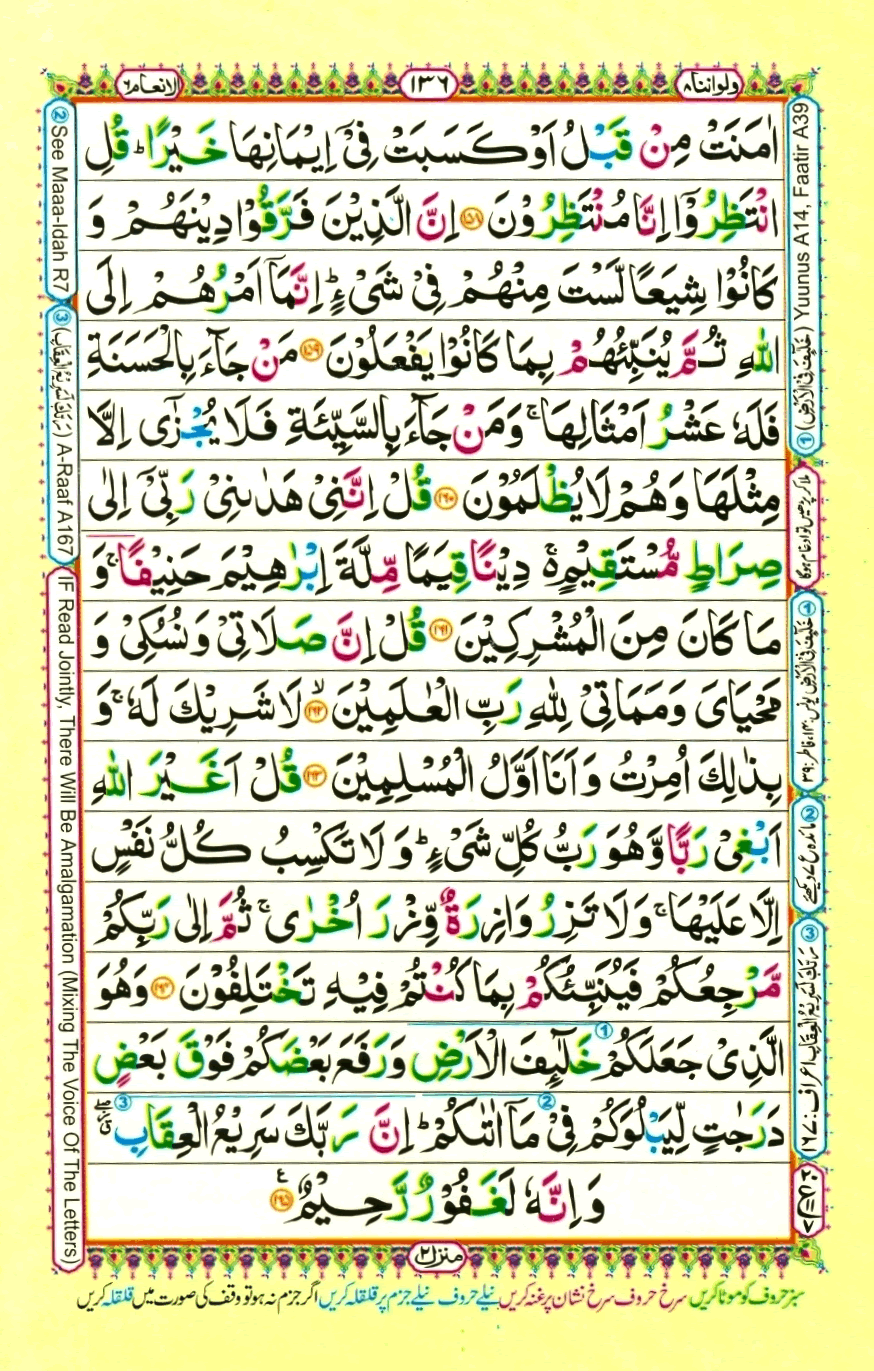 ولواننا ٨
١٣٦
الانعام ٦
اٰمَنَتْ مِنْ قَبْلُ اَوْ كَسَبَتْ فِیْۤ اِیْمَانِهَا خَیْرًا ؕ قُلِ
انْتَظِرُوْۤا اِنَّا مُنْتَظِرُوْنَ ﴿۱۵۸﴾ اِنَّ الَّذِیْنَ فَرَّقُوْا دِیْنَهُمْ وَ
كَانُوْا شِیَعًا لَّسْتَ مِنْهُمْ فِیْ شَیْءٍ ؕ اِنَّمَاۤ اَمْرُهُمْ اِلَى
اللّٰهِ ثُمَّ یُنَبِّئُهُمْ بِمَا كَانُوْا یَفْعَلُوْنَ ﴿۱۵۹﴾ مَنْ جَآءَ بِالْحَسَنَةِ
فَلَهٗ عَشْرُ اَمْثَالِهَا ۚ وَمَنْ جَآءَ بِالسَّیِّئَةِ فَلَا یُجْزٰۤی اِلَّا
مِثْلَهَا وَهُمْ لَا یُظْلَمُوْنَ ﴿۱۶۰﴾ قُلْ اِنَّنِیْ هَدٰىنِیْ رَبِّیْۤ اِلٰی
صِرَاطٍ مُّسْتَقِیْمٍ ۚ۬ دِیْنًا قِیَمًا مِّلَّةَ اِبْرٰهِیْمَ حَنِیْفًا ۚ وَ
مَا كَانَ مِنَ الْمُشْرِكِیْنَ ﴿۱۶۱﴾ قُلْ اِنَّ صَلَاتِیْ وَنُسُكِیْ وَ
مَحْیَایَ وَمَمَاتِیْ لِلّٰهِ رَبِّ الْعٰلَمِیْنَ ﴿۱۶۲﴾ۙ لَا شَرِیْكَ لَهٗ ۚ وَ
بِذٰلِكَ اُمِرْتُ وَاَنَا اَوَّلُ الْمُسْلِمِیْنَ ﴿۱۶۳﴾ قُلْ اَغَیْرَ اللّٰهِ
اَبْغِیْ رَبًّا وَّهُوَ رَبُّ كُلِّ شَیْءٍ ؕ وَلَا تَكْسِبُ كُلُّ نَفْسٍ
اِلَّا عَلَیْهَا ۚ وَلَا تَزِرُ وَازِرَةٌ وِّزْرَ اُخْرٰی ۚ ثُمَّ اِلٰی رَبِّكُمْ
مَّرْجِعُكُمْ فَیُنَبِّئُكُمْ بِمَا كُنْتُمْ فِیْهِ تَخْتَلِفُوْنَ ﴿۱۶۴﴾ وَهُوَ
الَّذِیْ جَعَلَكُمْ خَلٰٓئِفَ الْاَرْضِ وَرَفَعَ بَعْضَكُمْ فَوْقَ بَعْضٍ
دَرَجٰتٍ لِّیَبْلُوَكُمْ فِیْ مَاۤ اٰتٰىكُمْ ؕ اِنَّ رَبَّكَ سَرِیْعُ الْعِقَابِ
وَاِنَّهٗ لَغَفُوْرٌ رَّحِیْمٌ ﴿۱۶۵﴾
① (خَلٰٓئِفَ فِی الْاَرْضِ) Yuunus A14, Faatir A39
ملا کر پڑھیں تو ادغام ہوگا
① خَلٰٓئِفَ فِی الْاَرْضِ یونس:۱۴، فاطر:۳۹
③ رَبَّكَ لَسَرِیْعُ الْعِقَابِ اعراف:۱۶۷
② See Maaa-Idah R7
③ (رَبَّكَ لَسَرِیْعُ الْعِقَابِ) A-Raaf A167
IF Read Jointly, There Will Be Amalgamation (Mixing The Voice Of The Letters)
منزل ٢
سبز حروف کو موٹا کریں سرخ حروف سرخ نشان پر غنہ کریں نیلے حروف نیلے جزم پر قلقلہ کریں اگر جزم نہ ہو تو وقف کی صورت میں قلقلہ کریں